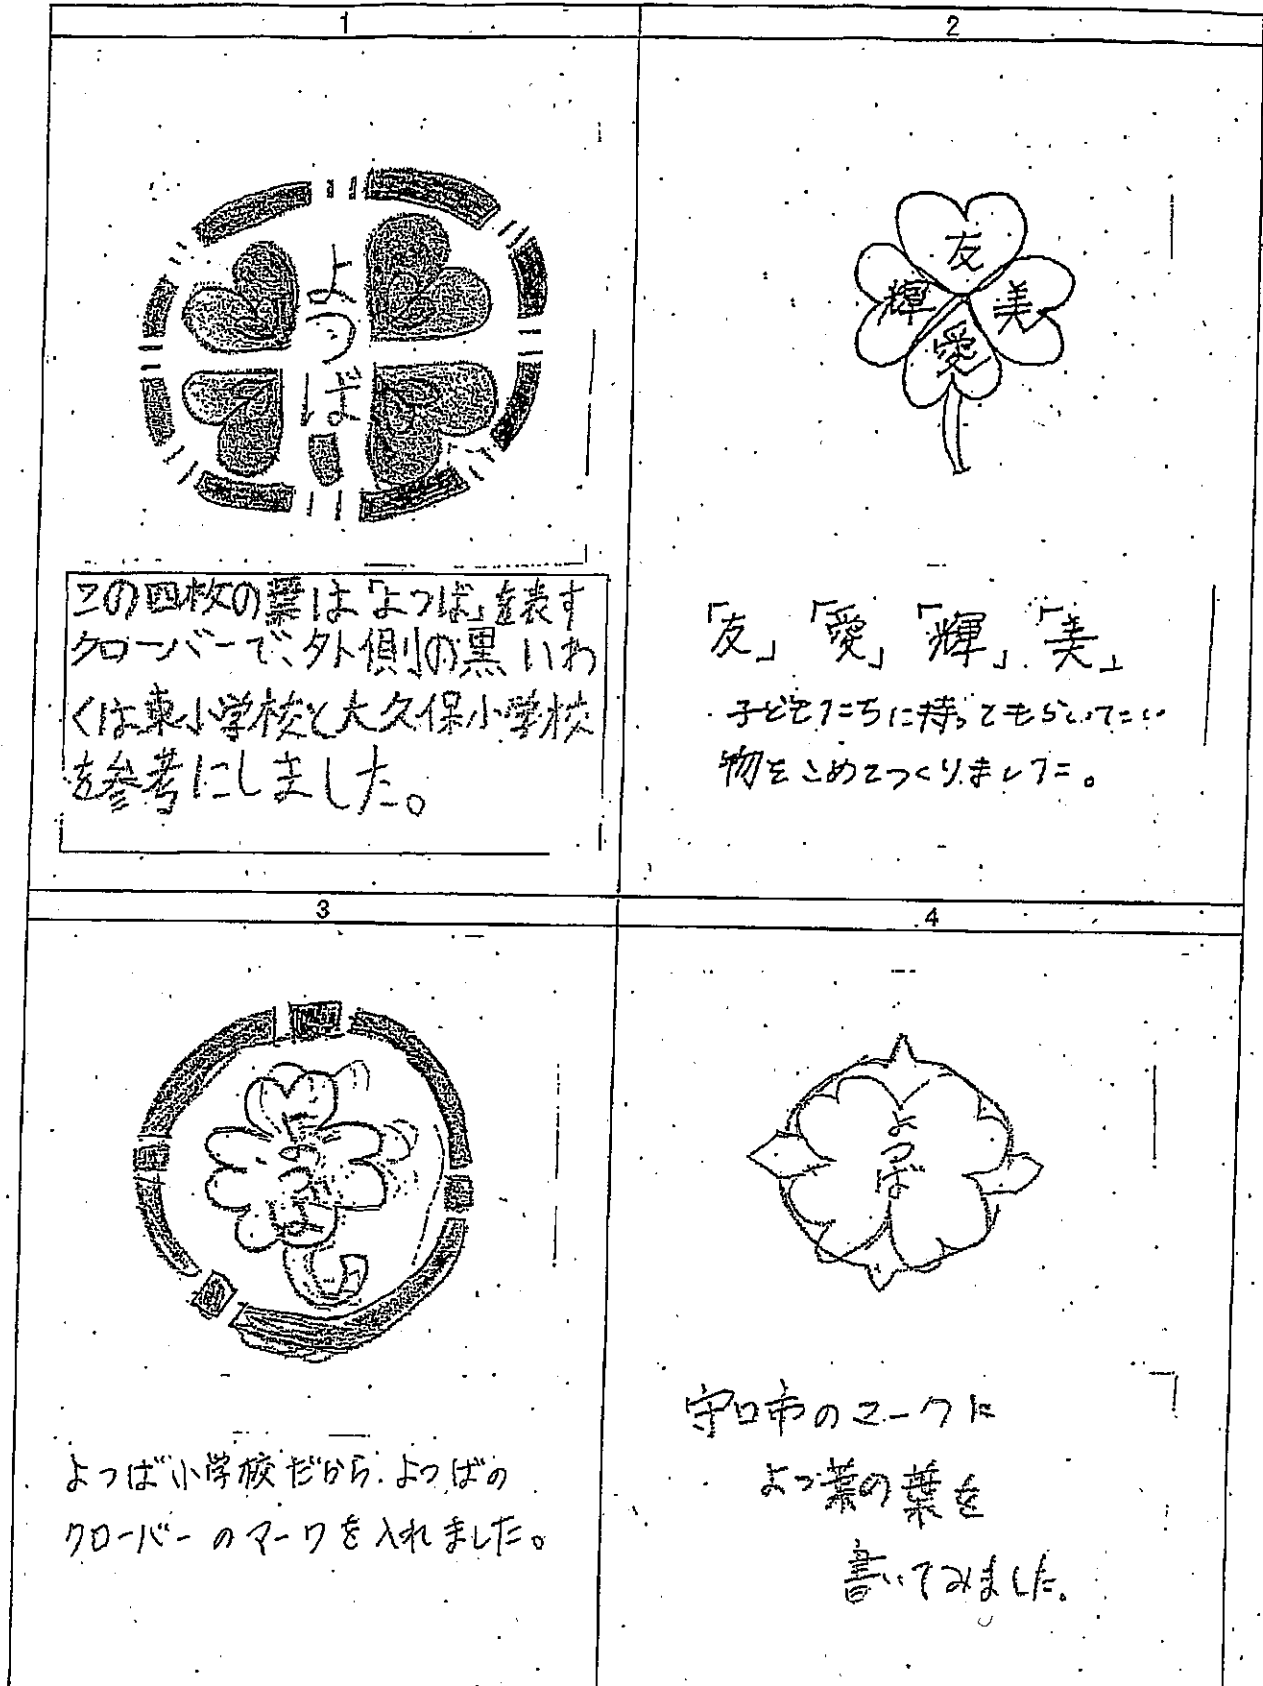 1
よつば
この四枚の葉は「よつば」を表す
クローバーで、外側の黒いわ
くは東小学校と大久保小学校
を参考にしました。
2
友
輝
美
愛
「友」「愛」「輝」「美」
子どもたちに持ってもらいたい
物をこめてつくりました。
3
よつば小学校だから、よつばの
クローバーのマークを入れました。
4
よつば
守口市のマークに
よつ葉の葉を
書いてみました。